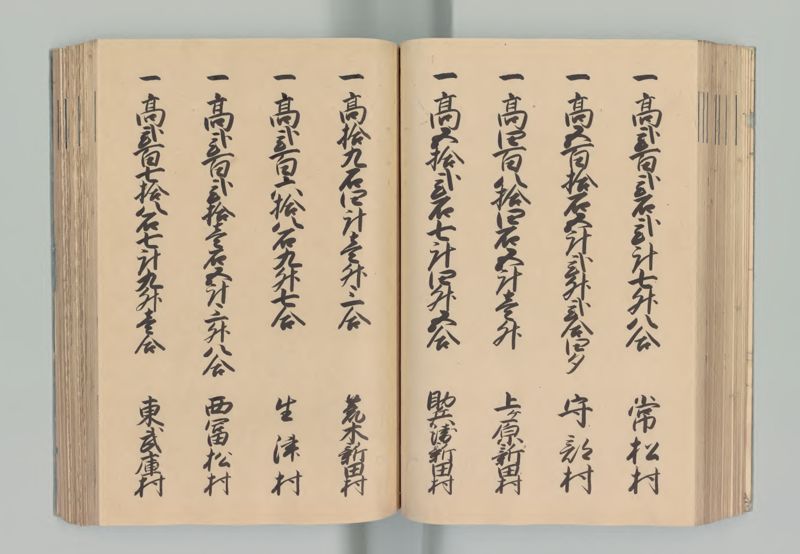 一 高弐百弐石弐斗七升八合 常松村
一 高五百拾石五斗弐升弐合四夕 守部村
一 高四百八拾四石五斗壱升 上ヶ原新田村
一 高五拾弐石七斗四升五合 助兵衛新田村
一 高拾九石四斗壱升二合 荒木新田村
一 高弐百六拾八石九升七合 生津村
一 高弐百弐拾壱石五斗三升八合 西富松村
一 高弐百七拾八石七斗九升壱合 東武庫村